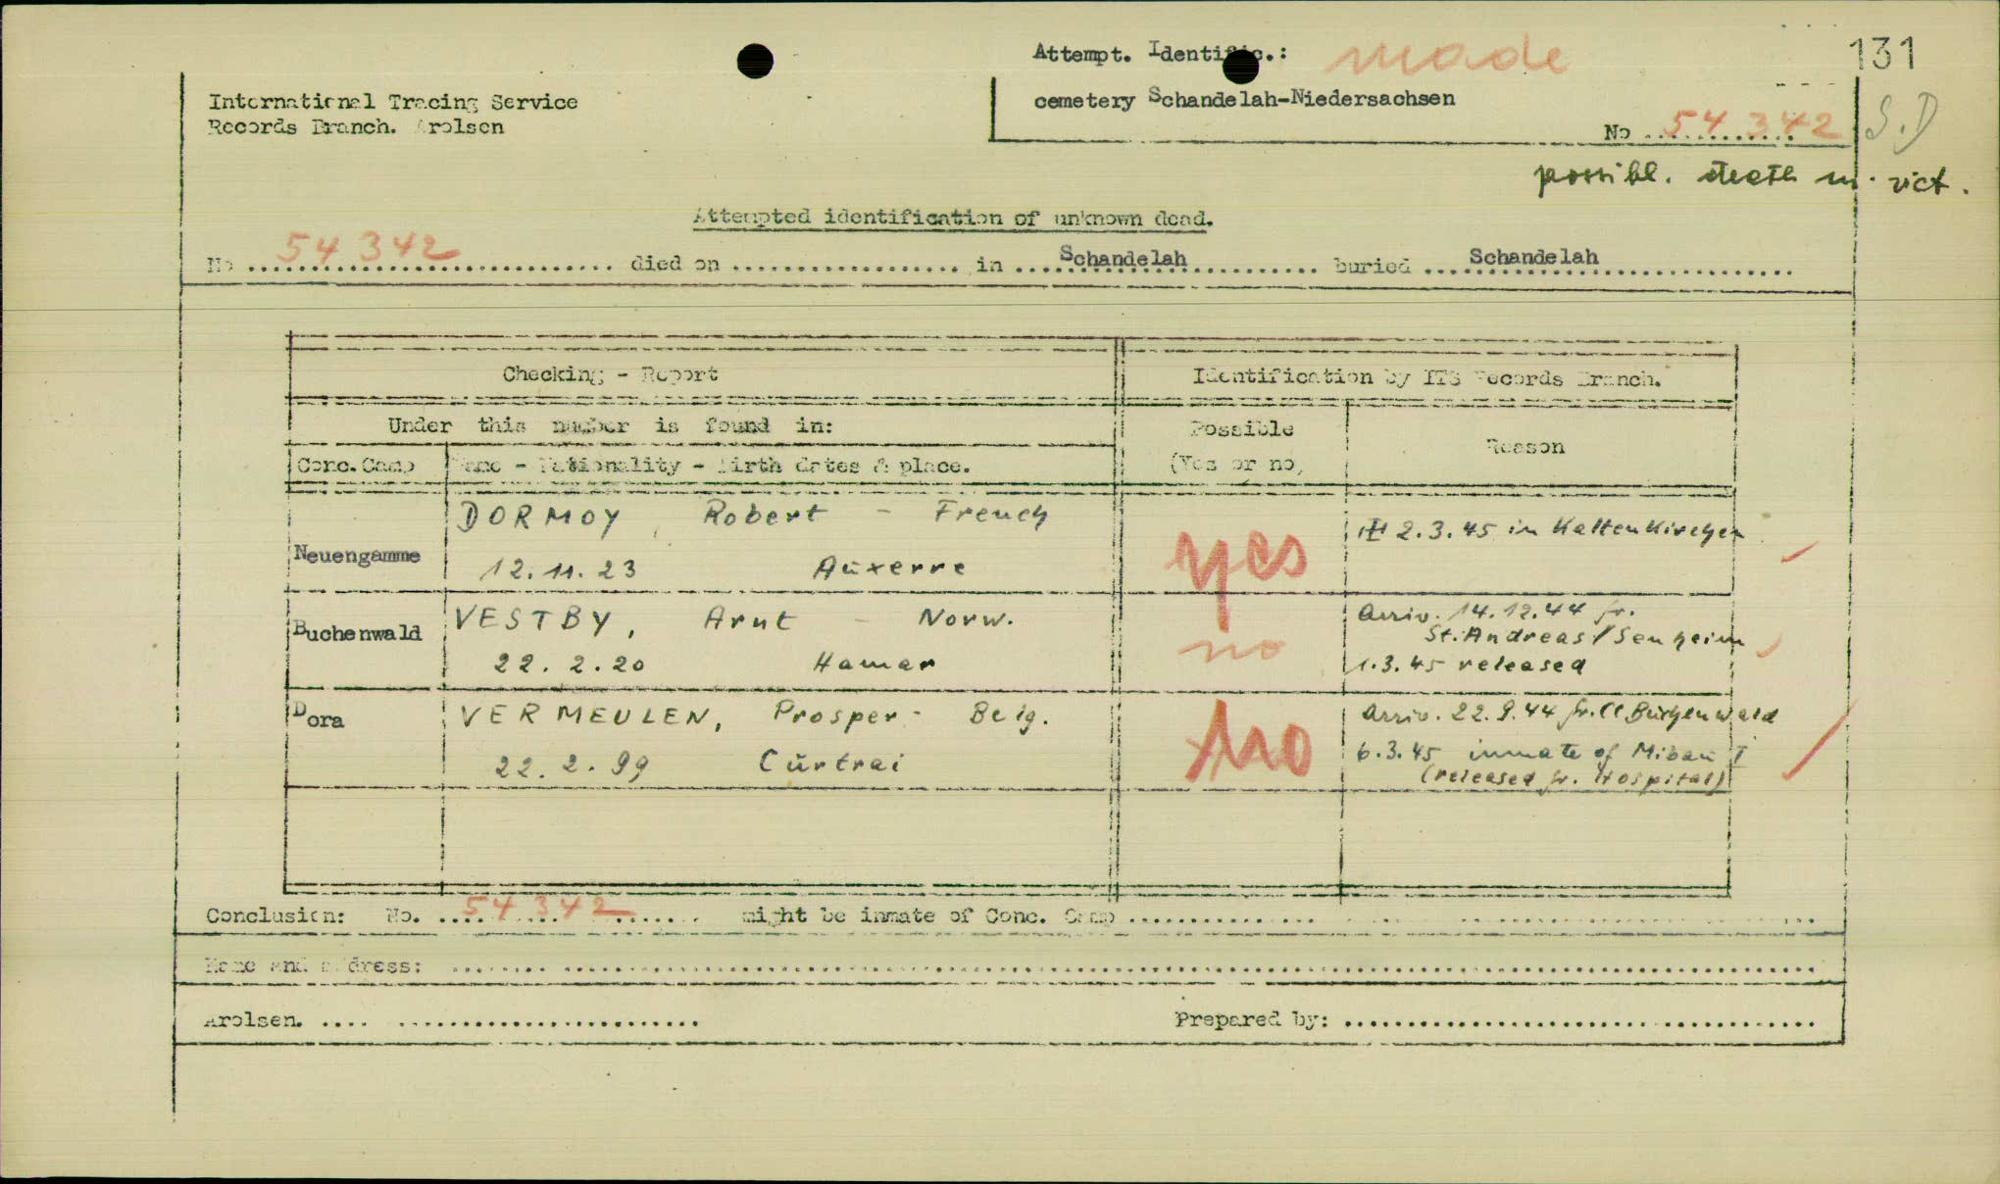 131
Attempt. Identific.: made
International Tracing Service
Records Branch. Arolsen
cemetery Schandelah-Niedersachsen
No 54 342
S.D
possibl. death m. vict.
Attempted identification of unknown dead.
No 54 342 died on in Schandelah buried Schandelah
Checking - Report
Identification by ITS Records Branch.
Under this number is found in:
Possible
(Yes or no)
Reason
Conc.Camp Name - Nationality - Birth dates & place.
Neuengamme
DORMOY, Robert - French
12.11.23 Auxerre
yes
2.3.45 in Kaltenkirchen
Buchenwald
VESTBY, Arnt - Norw.
22.2.20 Hamar
no
Arriv. 14.12.44 fr.
St. Andreas/Senheim
1.3.45 released
Dora
VERMEULEN, Prosper - Belg.
22.2.99 Cŭrtrai
no
Arriv. 22.9.44 fr. CC Bŭchenwald
6.3.45 inmate of Mibaŭ I
(released fr. Hospital)
Conclusion: No. 54 342 might be inmate of Conc. Camp
Name and address:
Arolsen.
Prepared by: